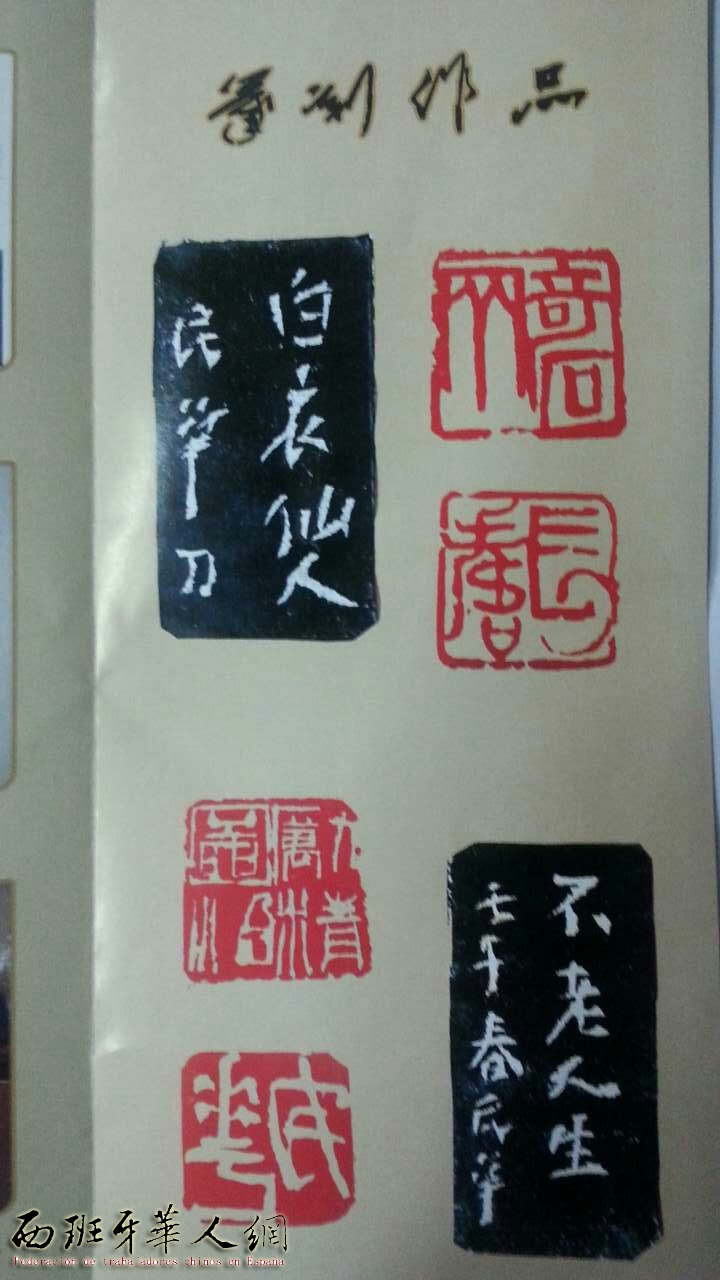 篆刻作品
白衣仙人
民华刀
奇石
长寿
不老人生
壬午春民华
民华
西班牙華人網
Federacion de trabajadores chinos en Espana